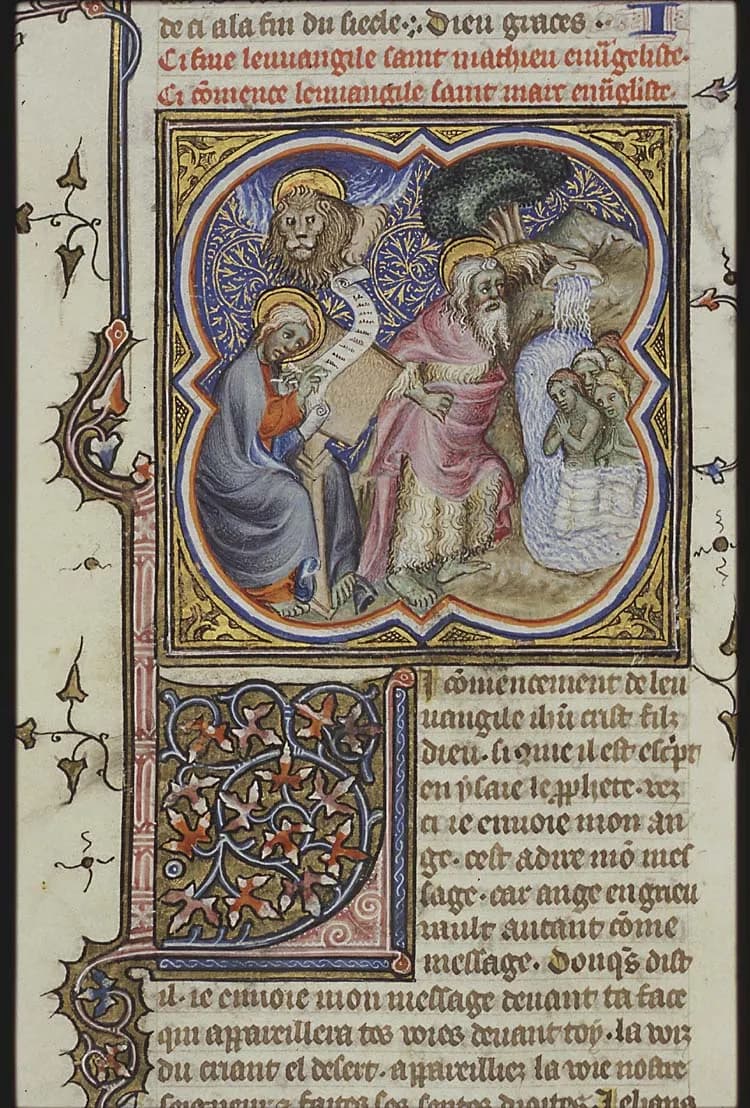 de ci a la fin du siecle. Dieu graces.
Ci fine leuuangile saint mathieu euūgeliste.
Ci cōmence leuuangile saint marc euūgliste.
cōmencement de leu
uangile ihū crist filz
dieu. si q̄me il est escpt
en ysaie le pphete. vez
ci ie enuoie mon an
ge. cest adire mō mes
sage. car ange en grieu
vault autant cōme
message. Donqs dist
il. ie enuoie mon message deuant ta face
qui appareillera tes voies deuant toy. la voiz
du criant el desert. appareilliez la voie nostre
seigneur & faites ses sentes droites. Iehans